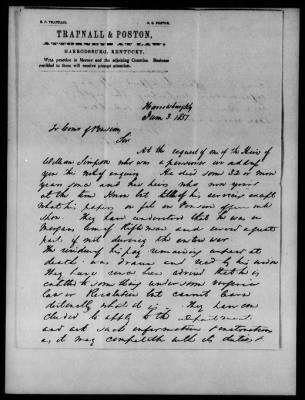 B. F. TRAPNALL. B. S. POSTON.
TRAPNALL & POSTON,
ATTORNEYS AT LAW,
HARRODSBURG, KENTUCKY.
WILL practice in Mercer and the adjoining Counties. Business
confided to them will receive prompt attention.
Harrodsburg Ky
3. 1851
To Comr of Pensions
Sir
At the request of one of the Heirs of
William Simpson who was a pensioner we address
you this note of enquiry. He died some 32 or more
years since and his heirs who now
at the time know but little of his services except
what his papers on file in Pension office
show. They have understood that he was in
Morgans of Riflemen and served a greater
part if not during the entire war
The of his pay remaining unpaid at
death was drawn and used by his widow
They have since been advised that he is
entitled to something under some
Law or Resolution but cannot learn
definitely what it is. They have con
cluded to apply to the department
and ask such information & instructions
as it may compatible with its duties to